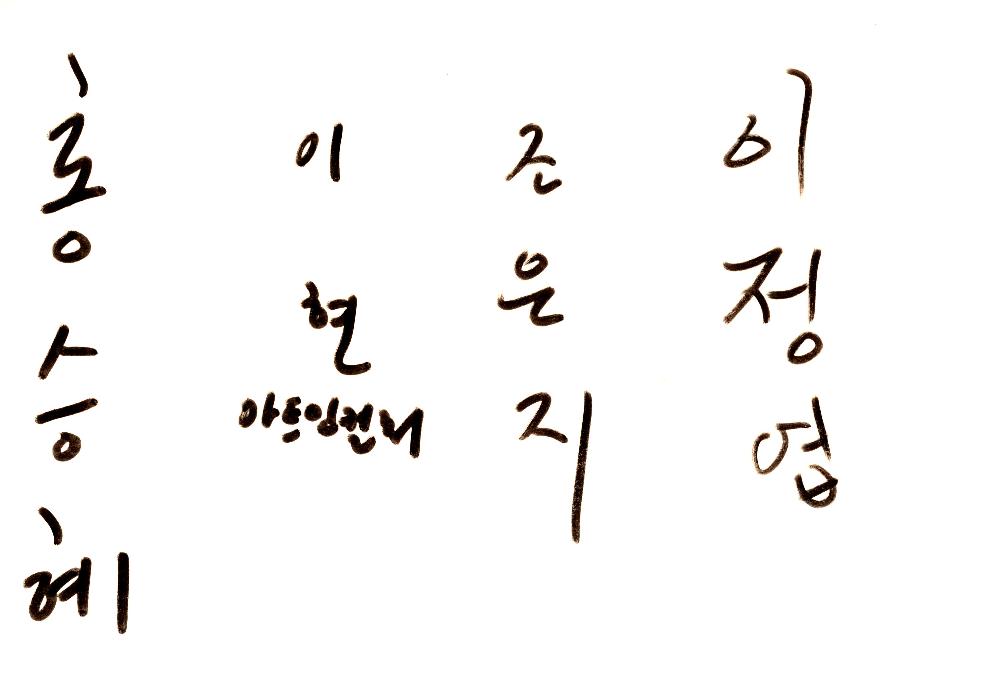 홍승혜
이현
아트잉캔버
조은지
이정엽